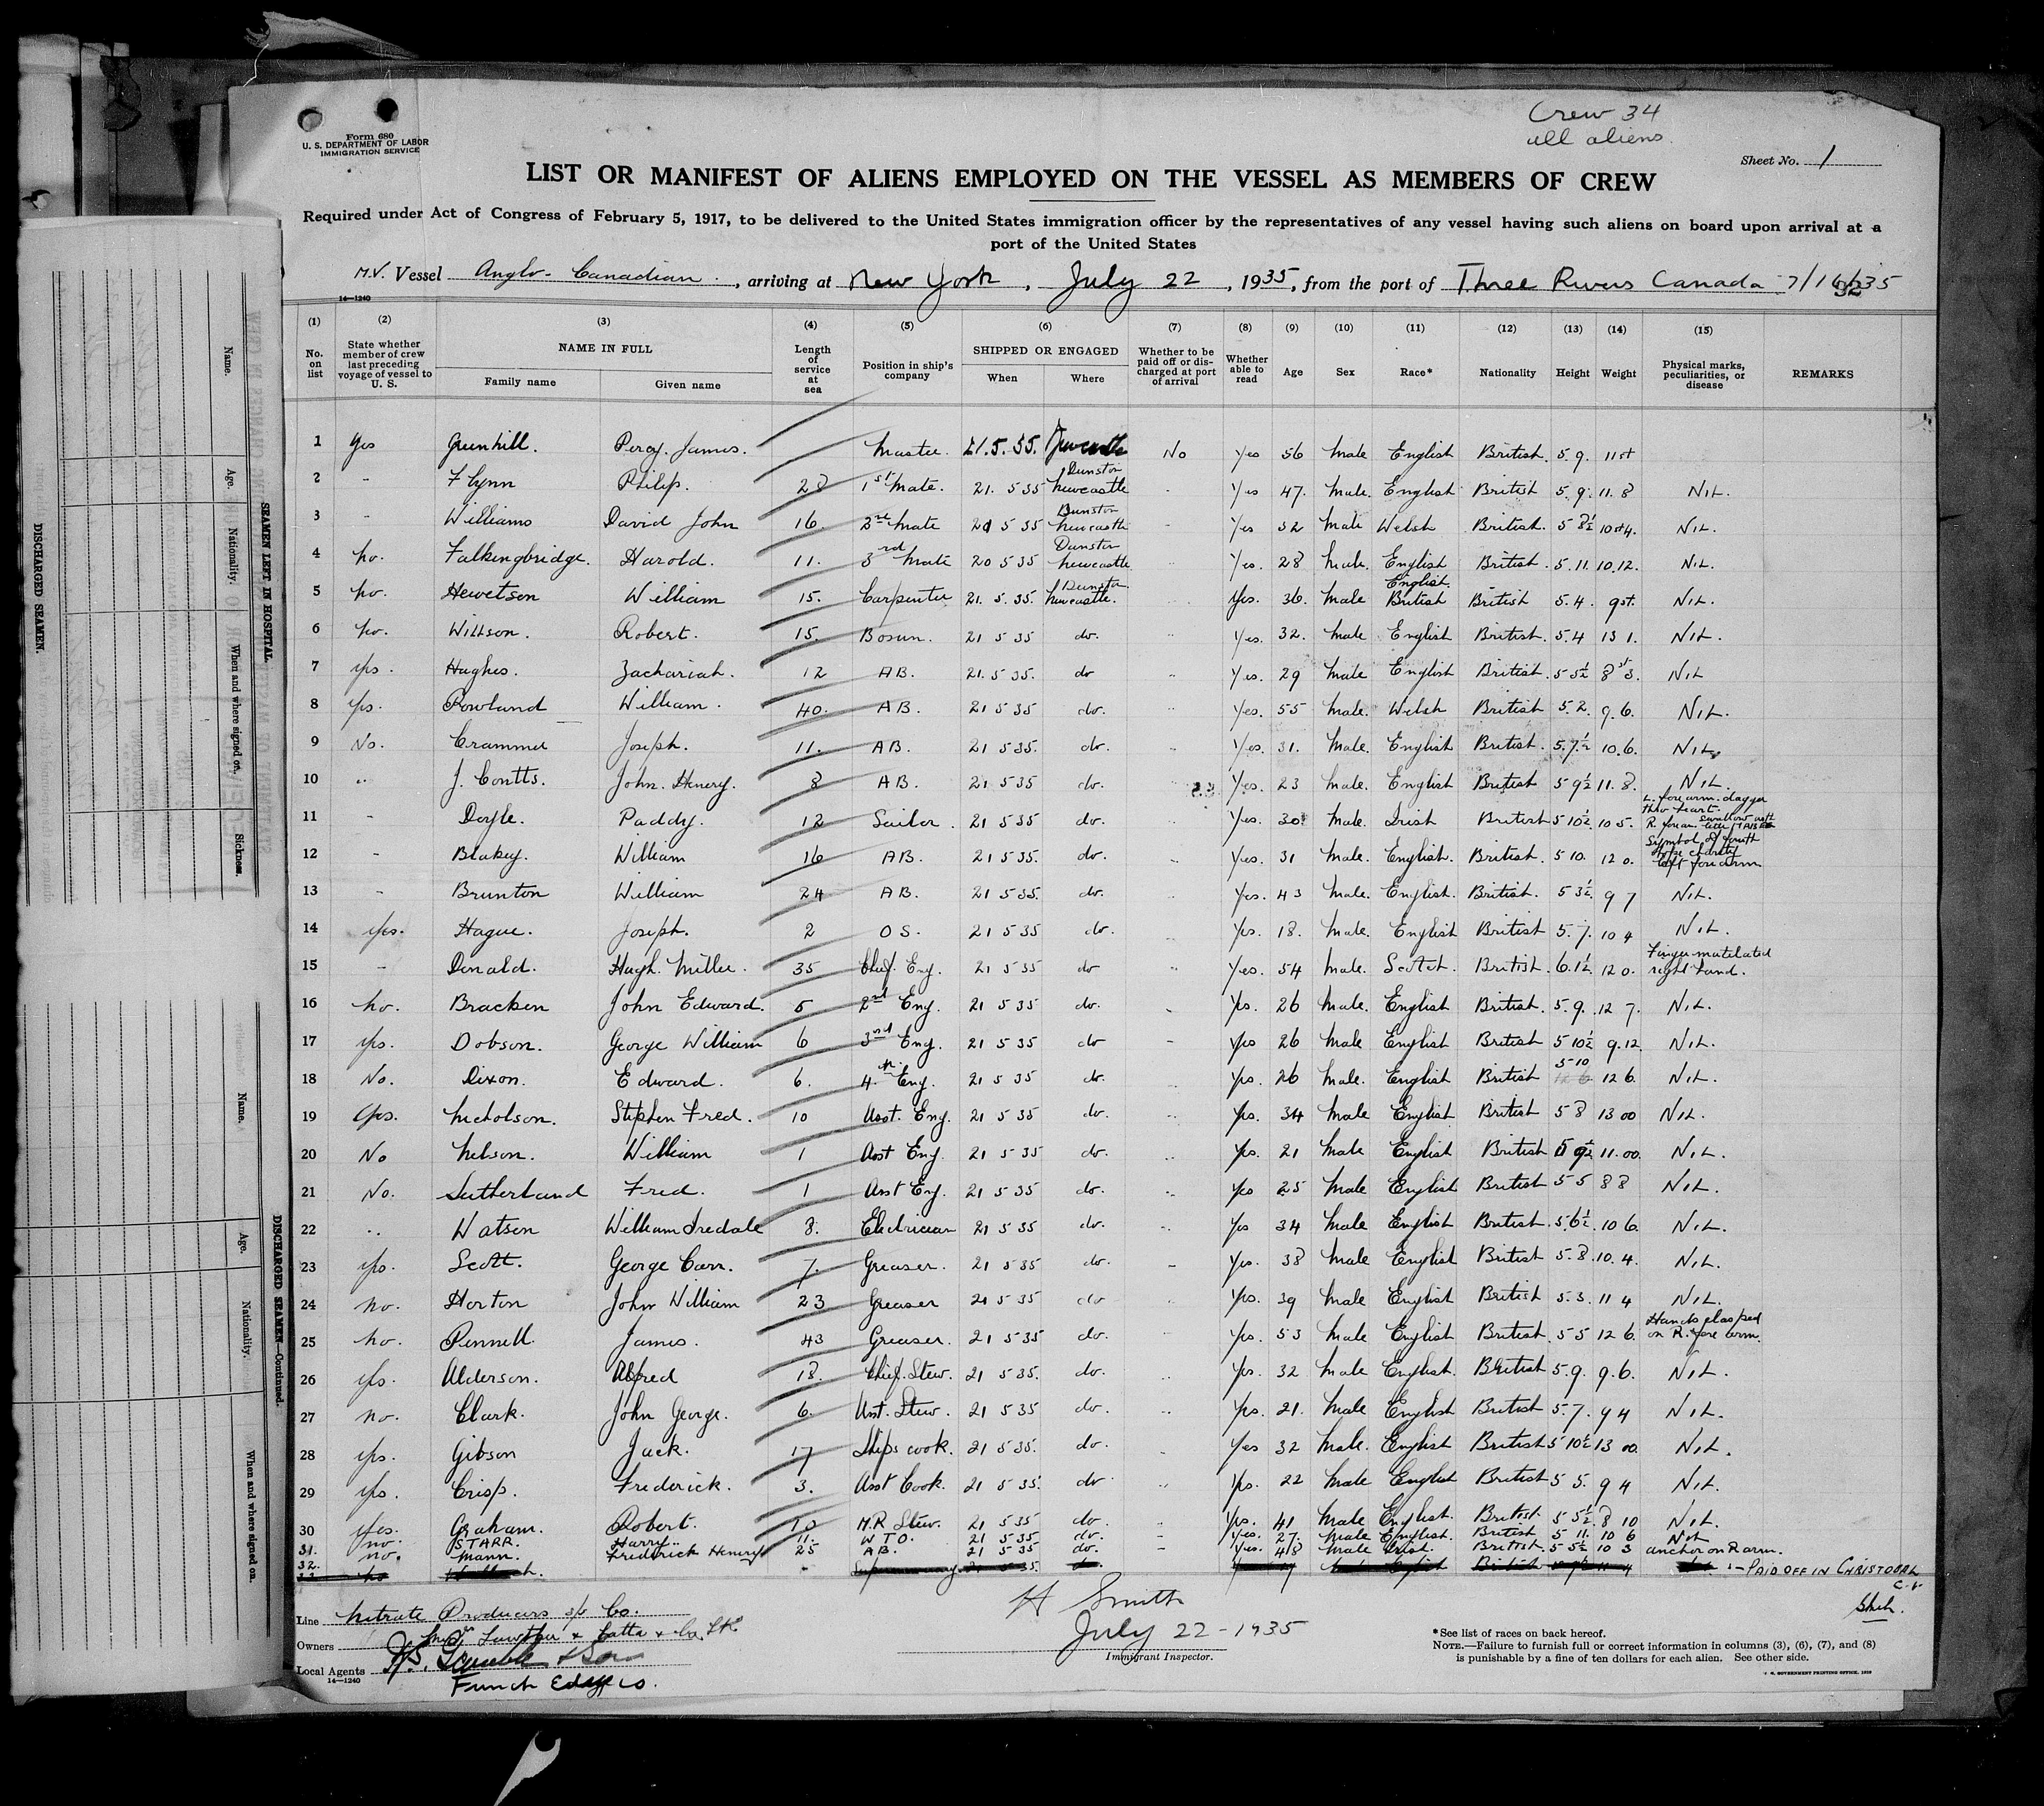 Crew 34
all aliens
Form 680
U. S. DEPARTMENT OF LABOR
IMMIGRATION SERVICE
Sheet No. 1
LIST OR MANIFEST OF ALIENS EMPLOYED ON THE VESSEL AS MEMBERS OF CREW
Required under Act of Congress of February 5, 1917, to be delivered to the United States immigration officer by the representatives of any vessel having such aliens on board upon arrival at a
port of the United States
M.V. Vessel Anglo-Canadian, arriving at New York, July 22, 1935, from the port of Three Rivers Canada 7/16/35
14—1240
(1) (2) (3) (4) (5) (6) (7) (8) (9) (10) (11) (12) (13) (14) (15)
No. on list State whether member of crew last preceding voyage of vessel to U. S. NAME IN FULL Family name Given name Length of service at sea Position in ship's company SHIPPED OR ENGAGED When Where Whether to be paid off or discharged at port of arrival Whether able to read Age Sex Race* Nationality Height Weight Physical marks, peculiarities, or disease REMARKS
1 Yes Greenhill. Percy. James. Master 21.5.35. Newcastle No Yes 56 Male English British 5.9. 11st
2 - Flynn Philip. 28 1st Mate. 21. 5 35 Dunston Newcastle - Yes 47. Male. English British 5.9. 11.8 Nil.
3 - Williams David John 16. 2nd Mate 21 5 35 Dunston Newcastle - Yes 32 Male Welsh British. 5 8½ 10st4. Nil.
4 No. Falkingbridge. Harold. 11. 3rd Mate 20 5 35 Dunston Newcastle Yes. 28 Male. English British. 5.11. 10.12. Nil.
5 No. Hewetson William 15. Carpenter 21. 5. 35. Dunston Newcastle. Yes. 36. Male English British British 5.4. 9st. Nil.
6 No. Willson. Robert. 15. Bosun. 21 5 35 do. Yes. 32. Male English British. 5.4 13 1. Nil.
7 Yes. Hughes. Zachariah. 12 AB. 21. 5 35. do Yes. 29 Male English British. 5 5½ 8st 3. Nil
8 Yes. Rowland William. 40. AB. 21 5 35 do. Yes. 55 Male. Welsh British 5.2. 9.6. Nil.
9 No. Crammer Joseph. 11. AB. 21 5 35. do. Yes. 31. Male. English British. 5.7½ 10.6. Nil
10 " J. Coutts. John. Henery. 8 AB. 21 5 35 do. Yes. 23 Male. English British 5 9½ 11.8. Nil.
11 - Doyle. Paddy. 12 Sailor. 21 5 35 do. Yes. 30 Male. Irish British 5 10½ 10 5. L. forearm. dagger thro heart. R. forearm Swallow with
12 - Blakey. William 16 AB. 21 5 35. do. Yes. 31 Male. English. British. 5 10. 12 0. Symbol of fourth Hope charity left forearm
13 - Brunton William 24 AB. 21 5 35. do. Yes. 43 Male. English. British. 5 3½. 9 7 Nil.
14 Yes. Hague. Joseph. 2 OS. 21 5 35 do. Yes. 18. Male. English British 5.7. 10 4 Nil.
15 - Donald. Hugh. Miller. 35 Chief. Eng. 21 5 35 do Yes. 54 Male. Scotch. British. 6.1½ 12 0. Finger mutilated right hand.
16 No. Bracken John Edward. 5 2nd Eng. 21 5 35 do. Yes. 26 Male. English British. 5.9. 12 7. Nil.
17 Yes. Dobson. George William 6 3rd Eng. 21 5 35 do - Yes 26 Male English British 5 10½ 9.12. Nil.
18 No. Dixon. Edward. 6. 4th Eng. 21 5 35 do. Yes. 26 Male. English British 5-10 12 6. Nil.
19 Yes. Nicholson. Stephen Fred. 10 Asst. Eng. 21 5 35 do. Yes. 34 Male English British 5 8 13 00 Nil.
20 No Nelson. William 1 Asst Eng. 21 5 35 do. Yes. 21 Male English British 5 9½ 11.00. Nil.
21 No. Sutherland Fred. 1 Asst Eng. 21 5 35 do. Yes 25 Male English British 5 5 8 8 Nil.
22 " Watson William Iredale 8. Electrician 21 5 35 do. Yes 34 Male English British. 5.6½. 10 6. Nil.
23 Yes. Scott. George Carr. 7. Greaser. 21 5 35 do. - Yes. 38 Male English British 5.8. 10.4. Nil.
24 No. Horton John William 23 Greaser 21 5 35 do Yes. 39 Male English British 5.3. 11 4 Nil.
25 No. Pennell. James. 43 Greaser. 21 5 35 do. Yes. 53 Male English British 5 5 12 6. Hands clasped on R. fore arm.
26 Yes. Alderson. Alfred 18. Chief. Stew. 21 5 35. do. Yes. 32 Male English British 5.9. 9.6. Nil.
27 No. Clark. John George. 6. Asst. Stew. 21 5 35 do. Yes. 21. Male English British 5.7. 9 4 Nil.
28 Yes. Gibson Jack. 17 Ships cook. 21 5 35. do. - Yes 32 Male. English British 5 10½ 13 00. Nil.
29 Yes. Crisp. Frederick. 3. Asst Cook. 21 5 35. do Yes. 22 Male English British 5 5. 9 4 Nil.
30 Yes. Graham. Robert. 10 M.R Stew. 21 5 35 do. - Yes. 41 Male English. British. 5 5½. 8 10 Nil.
31. No. STARR. Harry. 11. W T O. 21 5 35 do. - Yes. 27. Male English. British 5 11. 10 6 Nil.
32. No. Mann. Fredrick Henry 25 AB. 21 5 35 do. - Yes. 48 Male Irish. British. 5 5½ 10 3 anchor on R arm.
21 5 35. do. British :- PAID OFF IN CHRISTOBAL
C.Z.
Line Nitrate Producers S/S Co.
Owners Lawther & Latta & Co. Ltd
Local Agents & Son
Funch Edye Co.
14—1240
H Smith
July 22-1935
Immigrant Inspector.
*See list of races on back hereof.
NOTE.—Failure to furnish full or correct information in columns (3), (6), (7), and (8)
is punishable by a fine of ten dollars for each alien. See other side.
U. S. GOVERNMENT PRINTING OFFICE
DISCHARGED SEAMEN.
Name.
Age.
Nationality.
When and where signed on.
Sickness.
SEAMEN LEFT IN HOSPITAL.
Name.
Age.
Nationality.
When and where signed on.
DISCHARGED SEAMEN—Continued.